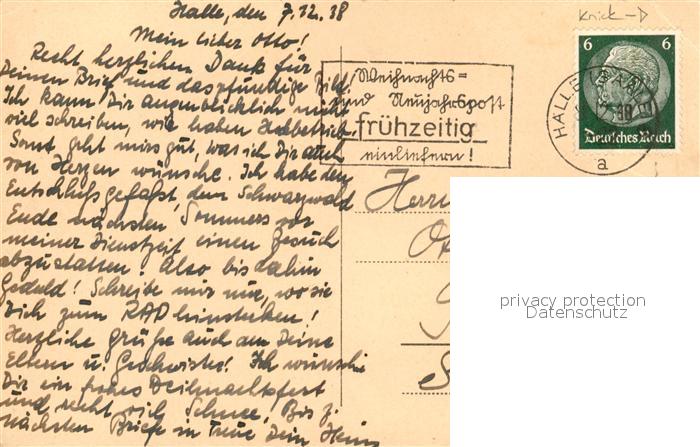 Halle, den 7.12.38
Mein lieber Otto!
Recht herzlichen Dank für
Deinen Brief und das pfundige Bild.
Ich kann Dir augenblicklich nicht
viel schreiben, wir haben Hochbetrieb.
Sonst geht mirs gut, was ich Dir auch
von Herzen wünsche. Ich habe den
Entschluß gefaßt, dem Schwarzwald
Ende nächsten Sommers vor
meiner Dienstzeit einen Besuch
abzustatten! Also bis dahin
Geduld! Schreibe mir nur, wo sie
Dich zum RAD hinstecken!
Herzliche Grüße auch an Deine
Eltern u. Geschwister! Ich wünsche
Dir ein frohes Weihnachtsfest
und recht viel Schnee! Bis z.
nächsten Briefe in Treue Dein Heinz
Weihnachts-
und Neujahrspost
frühzeitig
einliefern!
Knick-D
6 6
Deutsches Reich
HALLE (SAALE)
a
Herrn
privacy protection
Datenschutz